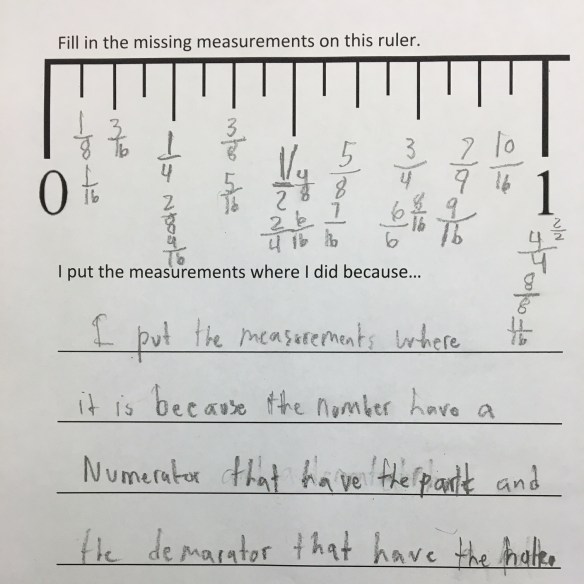 Fill in the missing measurements on this ruler.
1/8 3/16 1/4 3/8 1/2 4/8 5/8 3/4 7/9 10/16
0 1/16 2/8 4/16 5/16 2/4 6/16 7/16 6/6 8/16 9/16 1
4/4 2/2
8/8
11/16
I put the measurements where I did because...
I put the measurements where
it is because the number have a
Numerator that have the part and
the demarator that have the